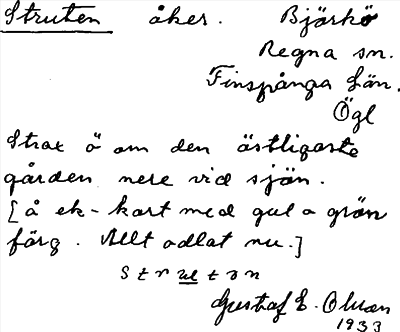 Struten åker. Björkö
Regna sn.
Finspånga län.
Ögl
Strax ö om den östligaste
gården nere vid sjön.
[å ek-kart med gul o grön
färg. Allt odlat nu.]
strutən
Gustaf E. Olsson
1933